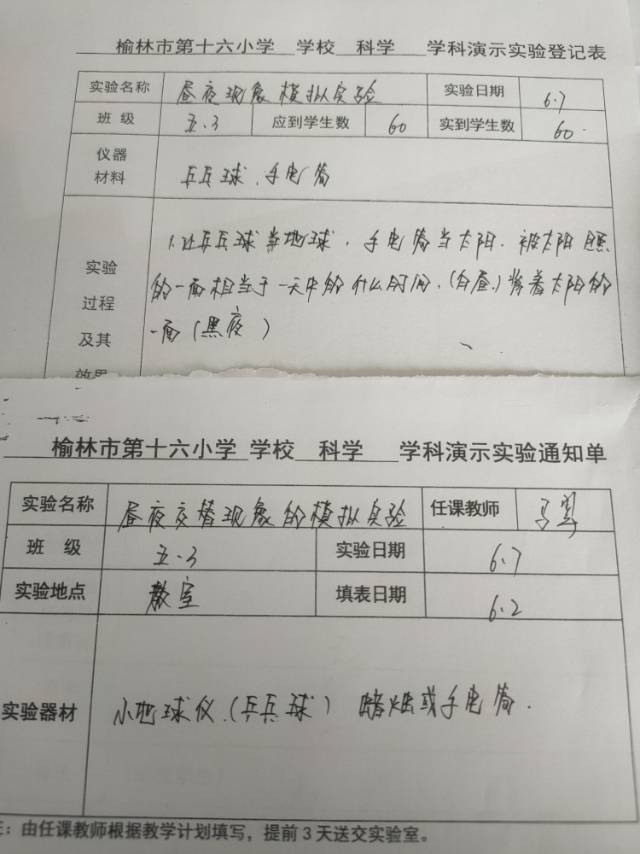 榆林市第十六小学 学校 科学 学科演示实验登记表
实验名称 昼夜现象模拟实验 实验日期 6.7
班 级 五.3 应到学生数 60 实到学生数 60
仪器材料 乒乓球、手电筒
实验
过程
及其
效果
1.让乒乓球当地球,手电筒当太阳.被太阳照
的一面相当于一天中的什么时间.(白昼)背着太阳的
一面(黑夜)
榆林市第十六小学 学校 科学 学科演示实验通知单
实验名称 昼夜交替现象的模拟实验 任课教师 马
班 级 五.3 实验日期 6.7
实验地点 教室 填表日期 6.2
实验器材 小地球仪.(乒乓球) 蜡烛或手电筒.
:由任课教师根据教学计划填写,提前3天送交实验室。